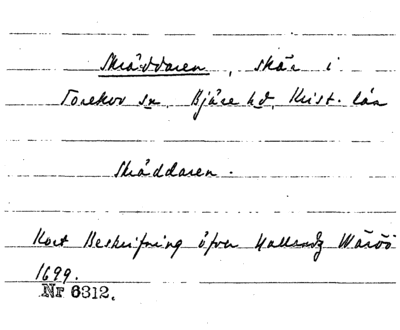 Skräddaren, skär i
Torekov sn Bjäre hd, Krist. län
Skräddaren.
Kort Beskrifning öfver Hallands Wäröö
1699.
Nr 6312.